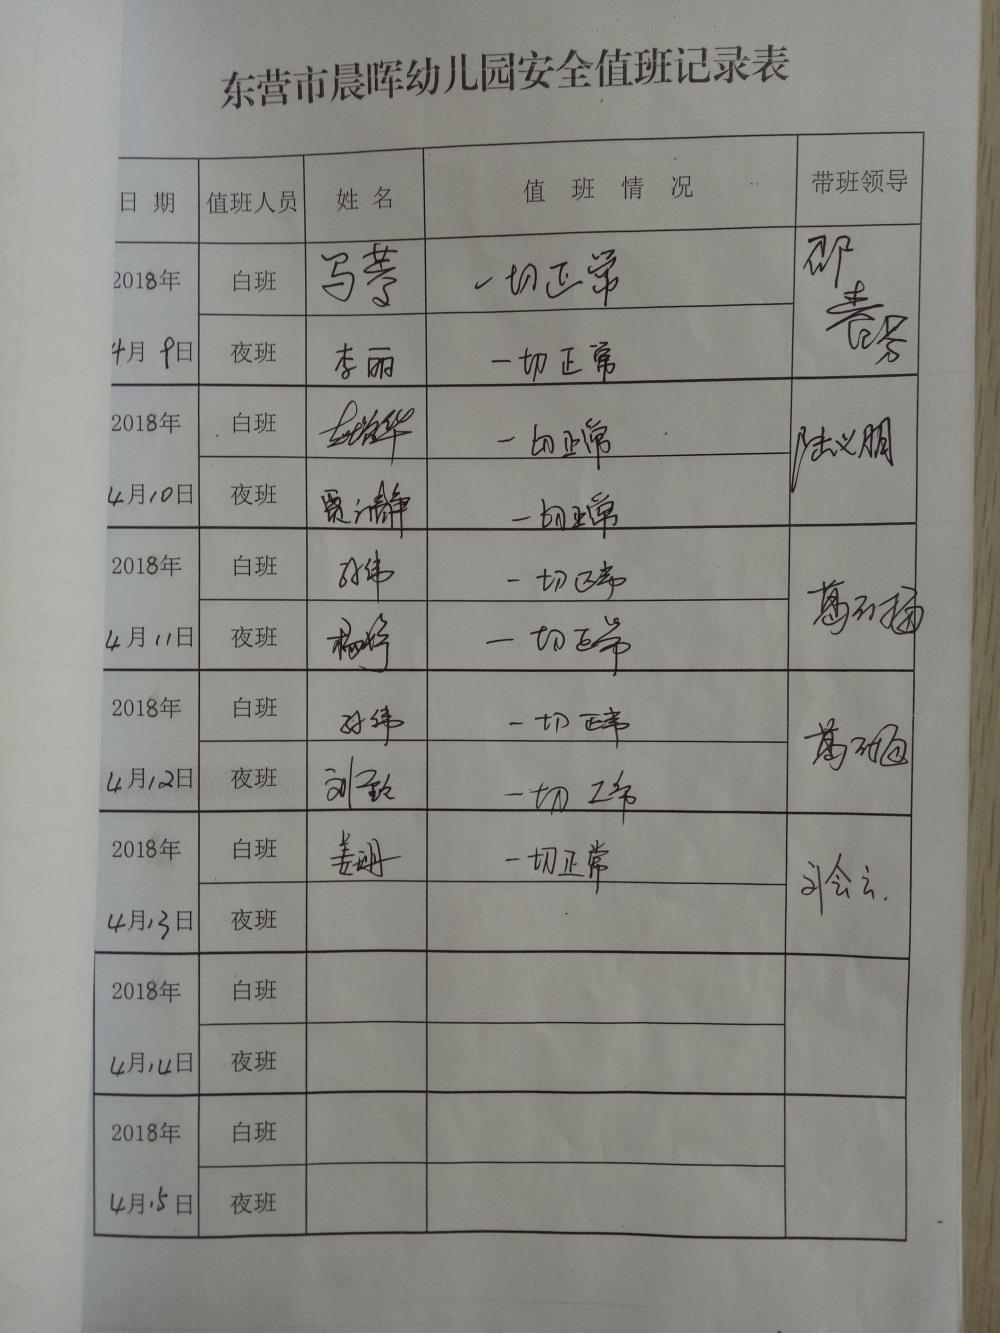 东营市晨晖幼儿园安全值班记录表
日期 值班人员 姓名 值班情况 带班领导
2018年 白班 一切正常
4月9日 夜班 李丽 一切正常
2018年 白班 一切正常 陆义朋
4月10日 夜班 一切正常
2018年 白班 孙伟 一切正常
4月11日 夜班 杨婷 一切正常
2018年 白班 孙伟 一切正常
4月12日 夜班 一切正常
2018年 白班 姜珊 一切正常 刘会云
4月13日 夜班
2018年 白班
4月14日 夜班
2018年 白班
4月15日 夜班